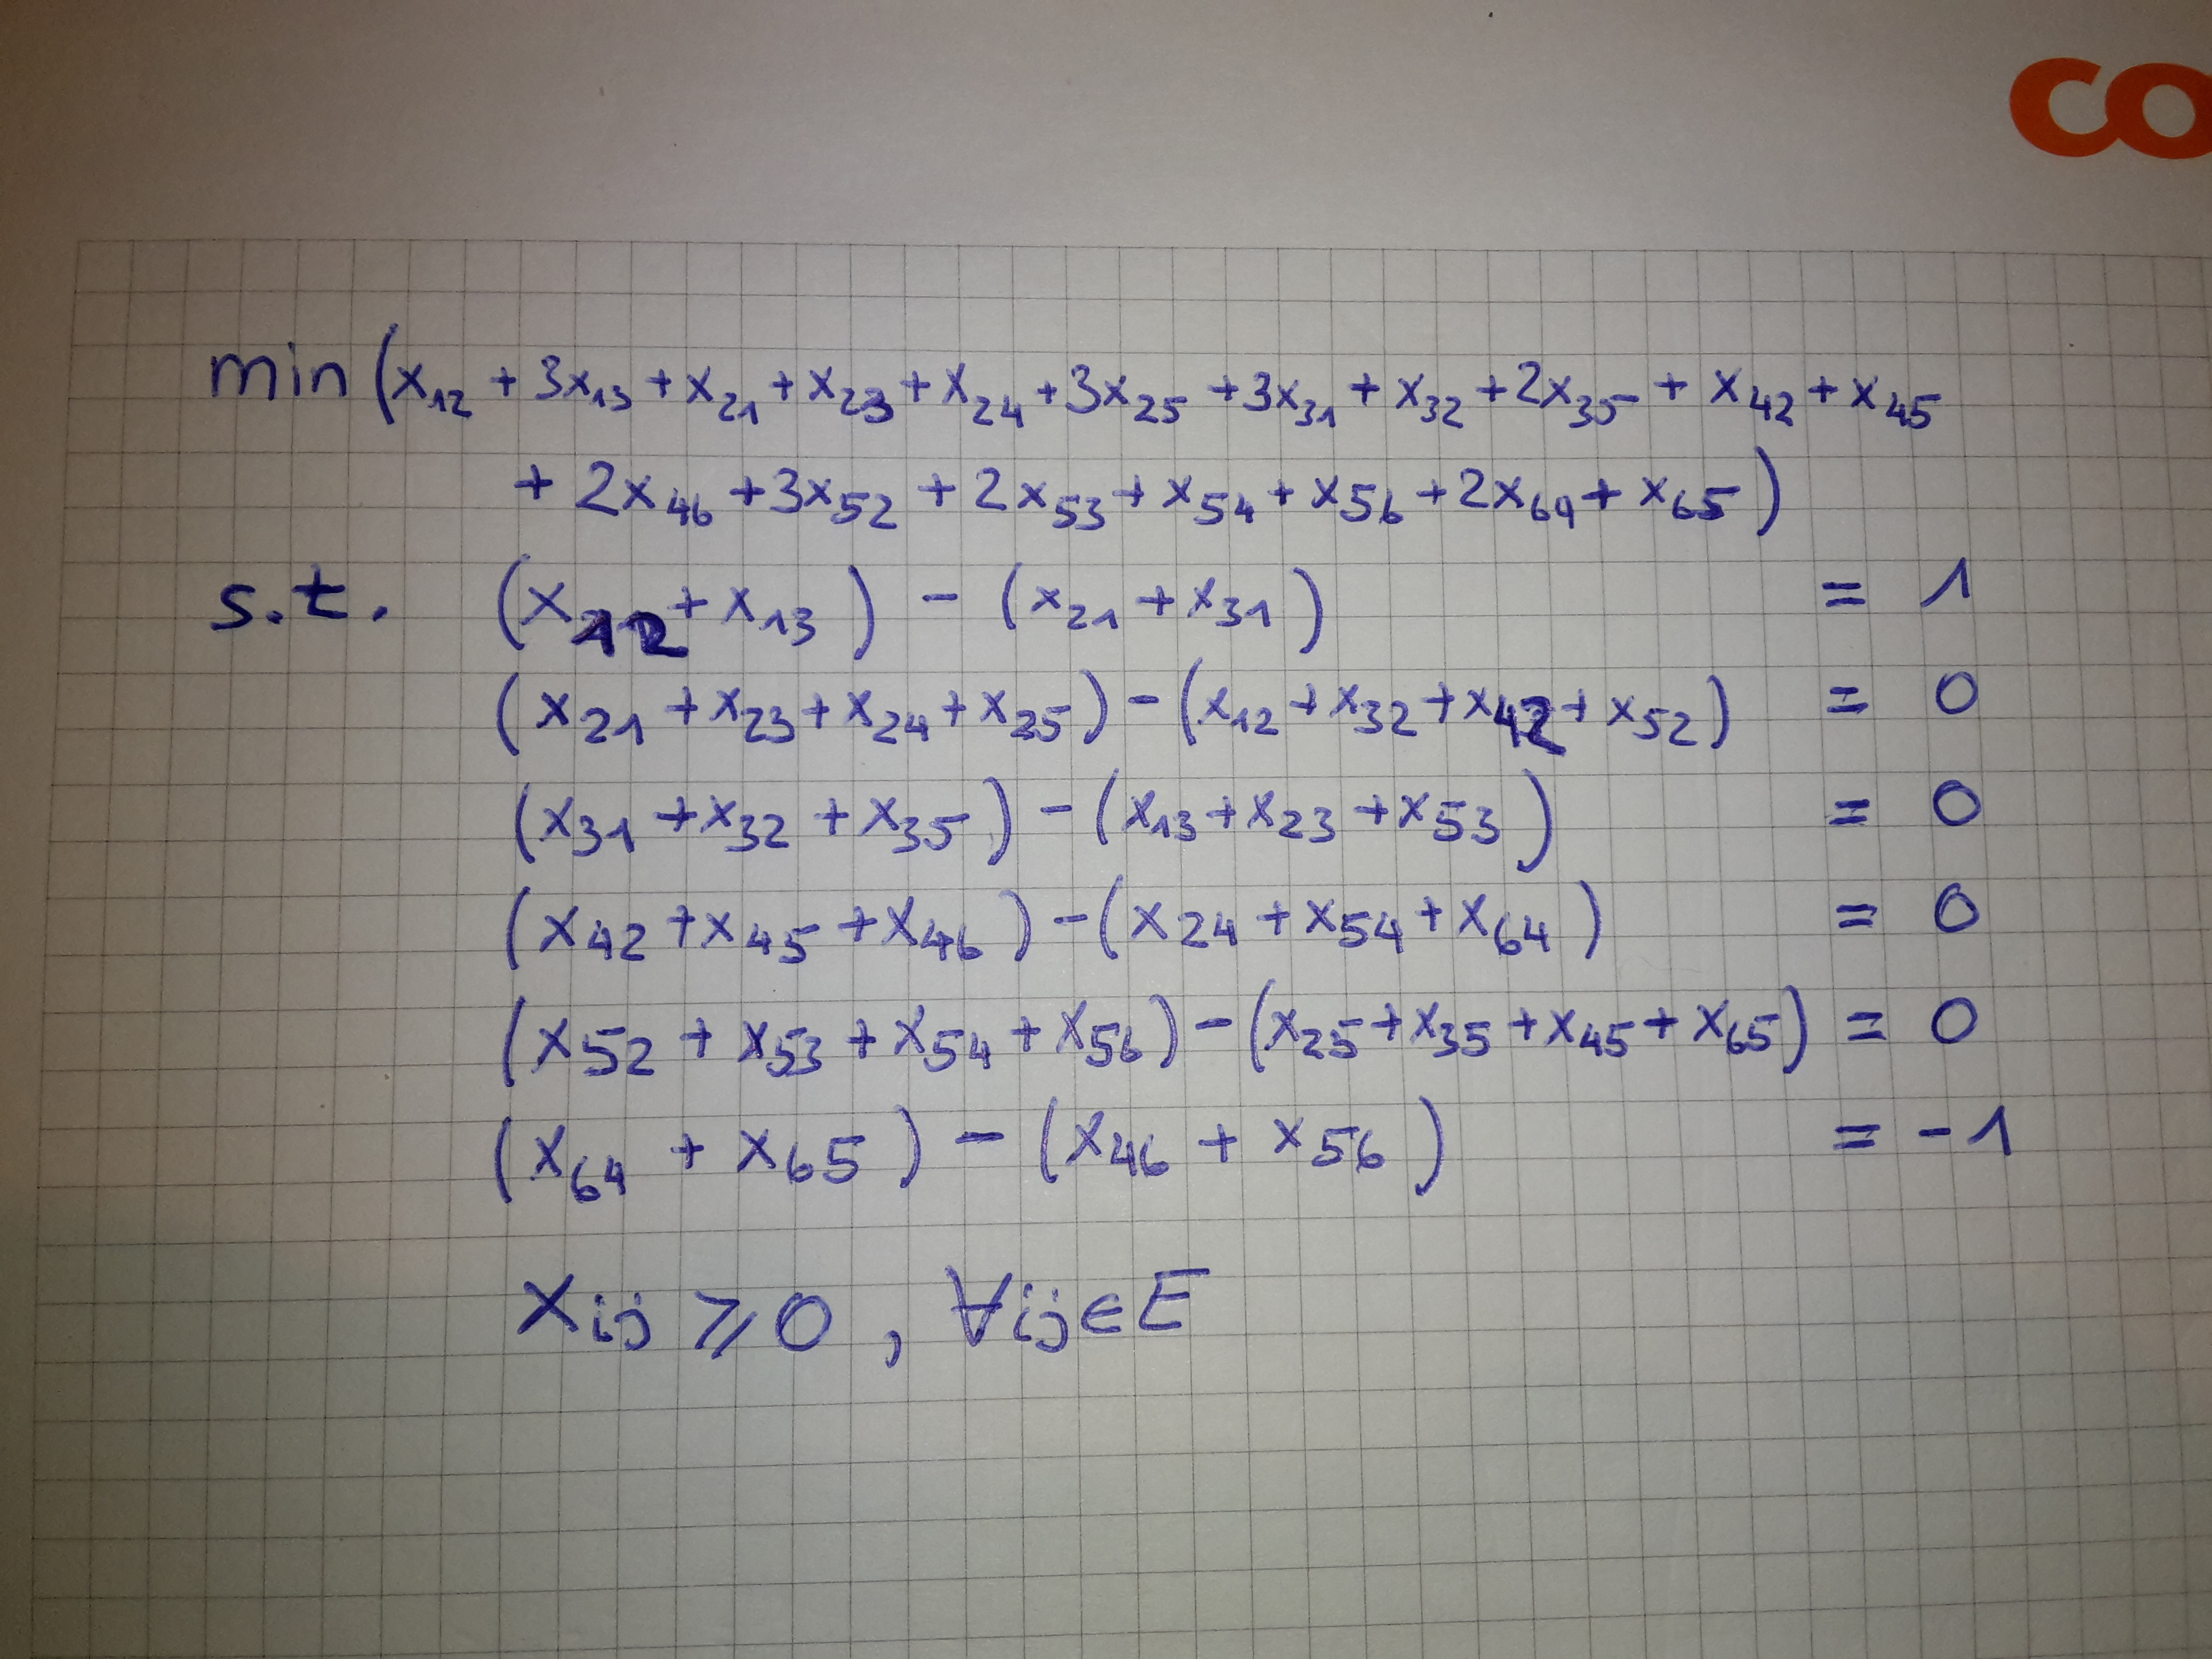 min (x₁₂ + 3x₁₃ + x₂₁ + x₂₃ + x₂₄ + 3x₂₅ + 3x₃₁ + x₃₂ + 2x₃₅ + x₄₂ + x₄₅
+ 2x₄₆ + 3x₅₂ + 2x₅₃ + x₅₄ + x₅₆ + 2x₆₄ + x₆₅)
s.t. (x₁₂ + x₁₃) - (x₂₁ + x₃₁) = 1
(x₂₁ + x₂₃ + x₂₄ + x₂₅) - (x₁₂ + x₃₂ + x₄₂ + x₅₂) = 0
(x₃₁ + x₃₂ + x₃₅) - (x₁₃ + x₂₃ + x₅₃) = 0
(x₄₂ + x₄₅ + x₄₆) - (x₂₄ + x₅₄ + x₆₄) = 0
(x₅₂ + x₅₃ + x₅₄ + x₅₆) - (x₂₅ + x₃₅ + x₄₅ + x₆₅) = 0
(x₆₄ + x₆₅) - (x₄₆ + x₅₆) = -1
xij ≥ 0, ∀ij∈E
co